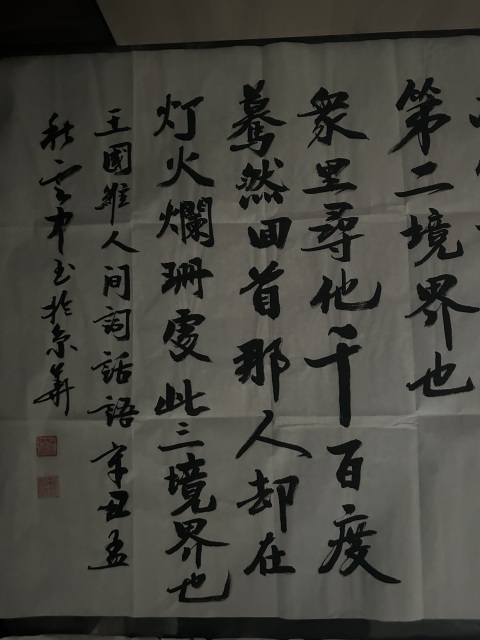 第二境界也
衆里尋他千百度
驀然回首那人却在
灯火爛珊處此三境界也
王國維人间词話語辛丑孟
秋雲中玉於京華